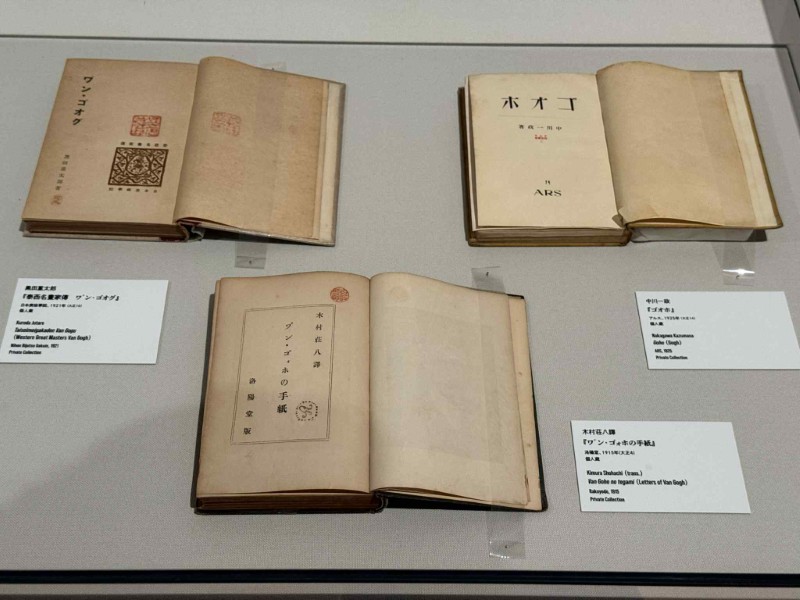 ワ゛ン・ゴオグ
黒田重太郎著
ゴオホ
中川一政著
ARS
木村荘八譯
ワ゛ン・ゴォホの手紙
洛陽堂版
黒田重太郎
『泰西名畫家傳 ワ゛ン・ゴオグ』
日本美術學院、1921年(大正10)
個人蔵
Kuroda Jutaro
Taiseimeigakaden Van Gogu
(Western Great Masters Van Gogh)
Nihon Bijutsu Gakuin, 1921
Private Collection
中川一政
『ゴオホ』
アルス、1925年(大正14)
個人蔵
Nakagawa Kazumasa
Goho (Gogh)
ARS, 1925
Private Collection
木村荘八譯
『ワ゛ン・ゴォホの手紙』
洛陽堂、1915年(大正4)
個人蔵
Kimura Shohachi (trans.)
Van Goho no tegami (Letters of Van Gogh)
Rakuyodo, 1915
Private Collection